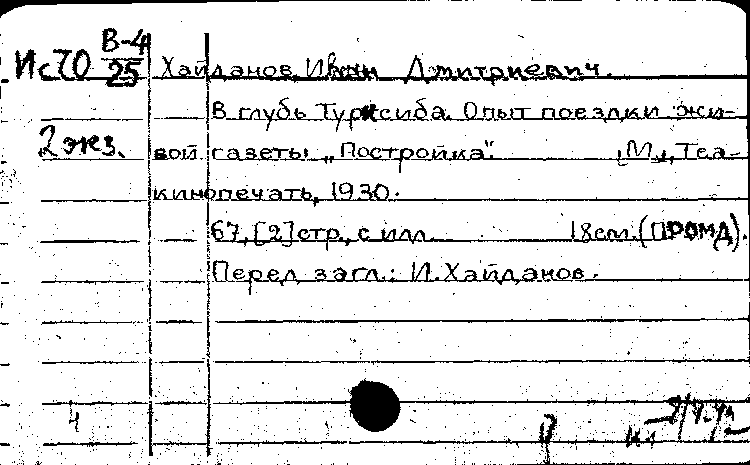 ИсТО В-4/25
Хайданов, Иван Дмитриевич.
В глубь Турксиба. Опыт поездки жи-
2 экз. вой газеты „Постройка". [М.], Теа-
кинопечать, 1930.
67, [2] стр., с илл. 18 см. (ПРОМД).
Перед загл.: И. Хайданов.
4